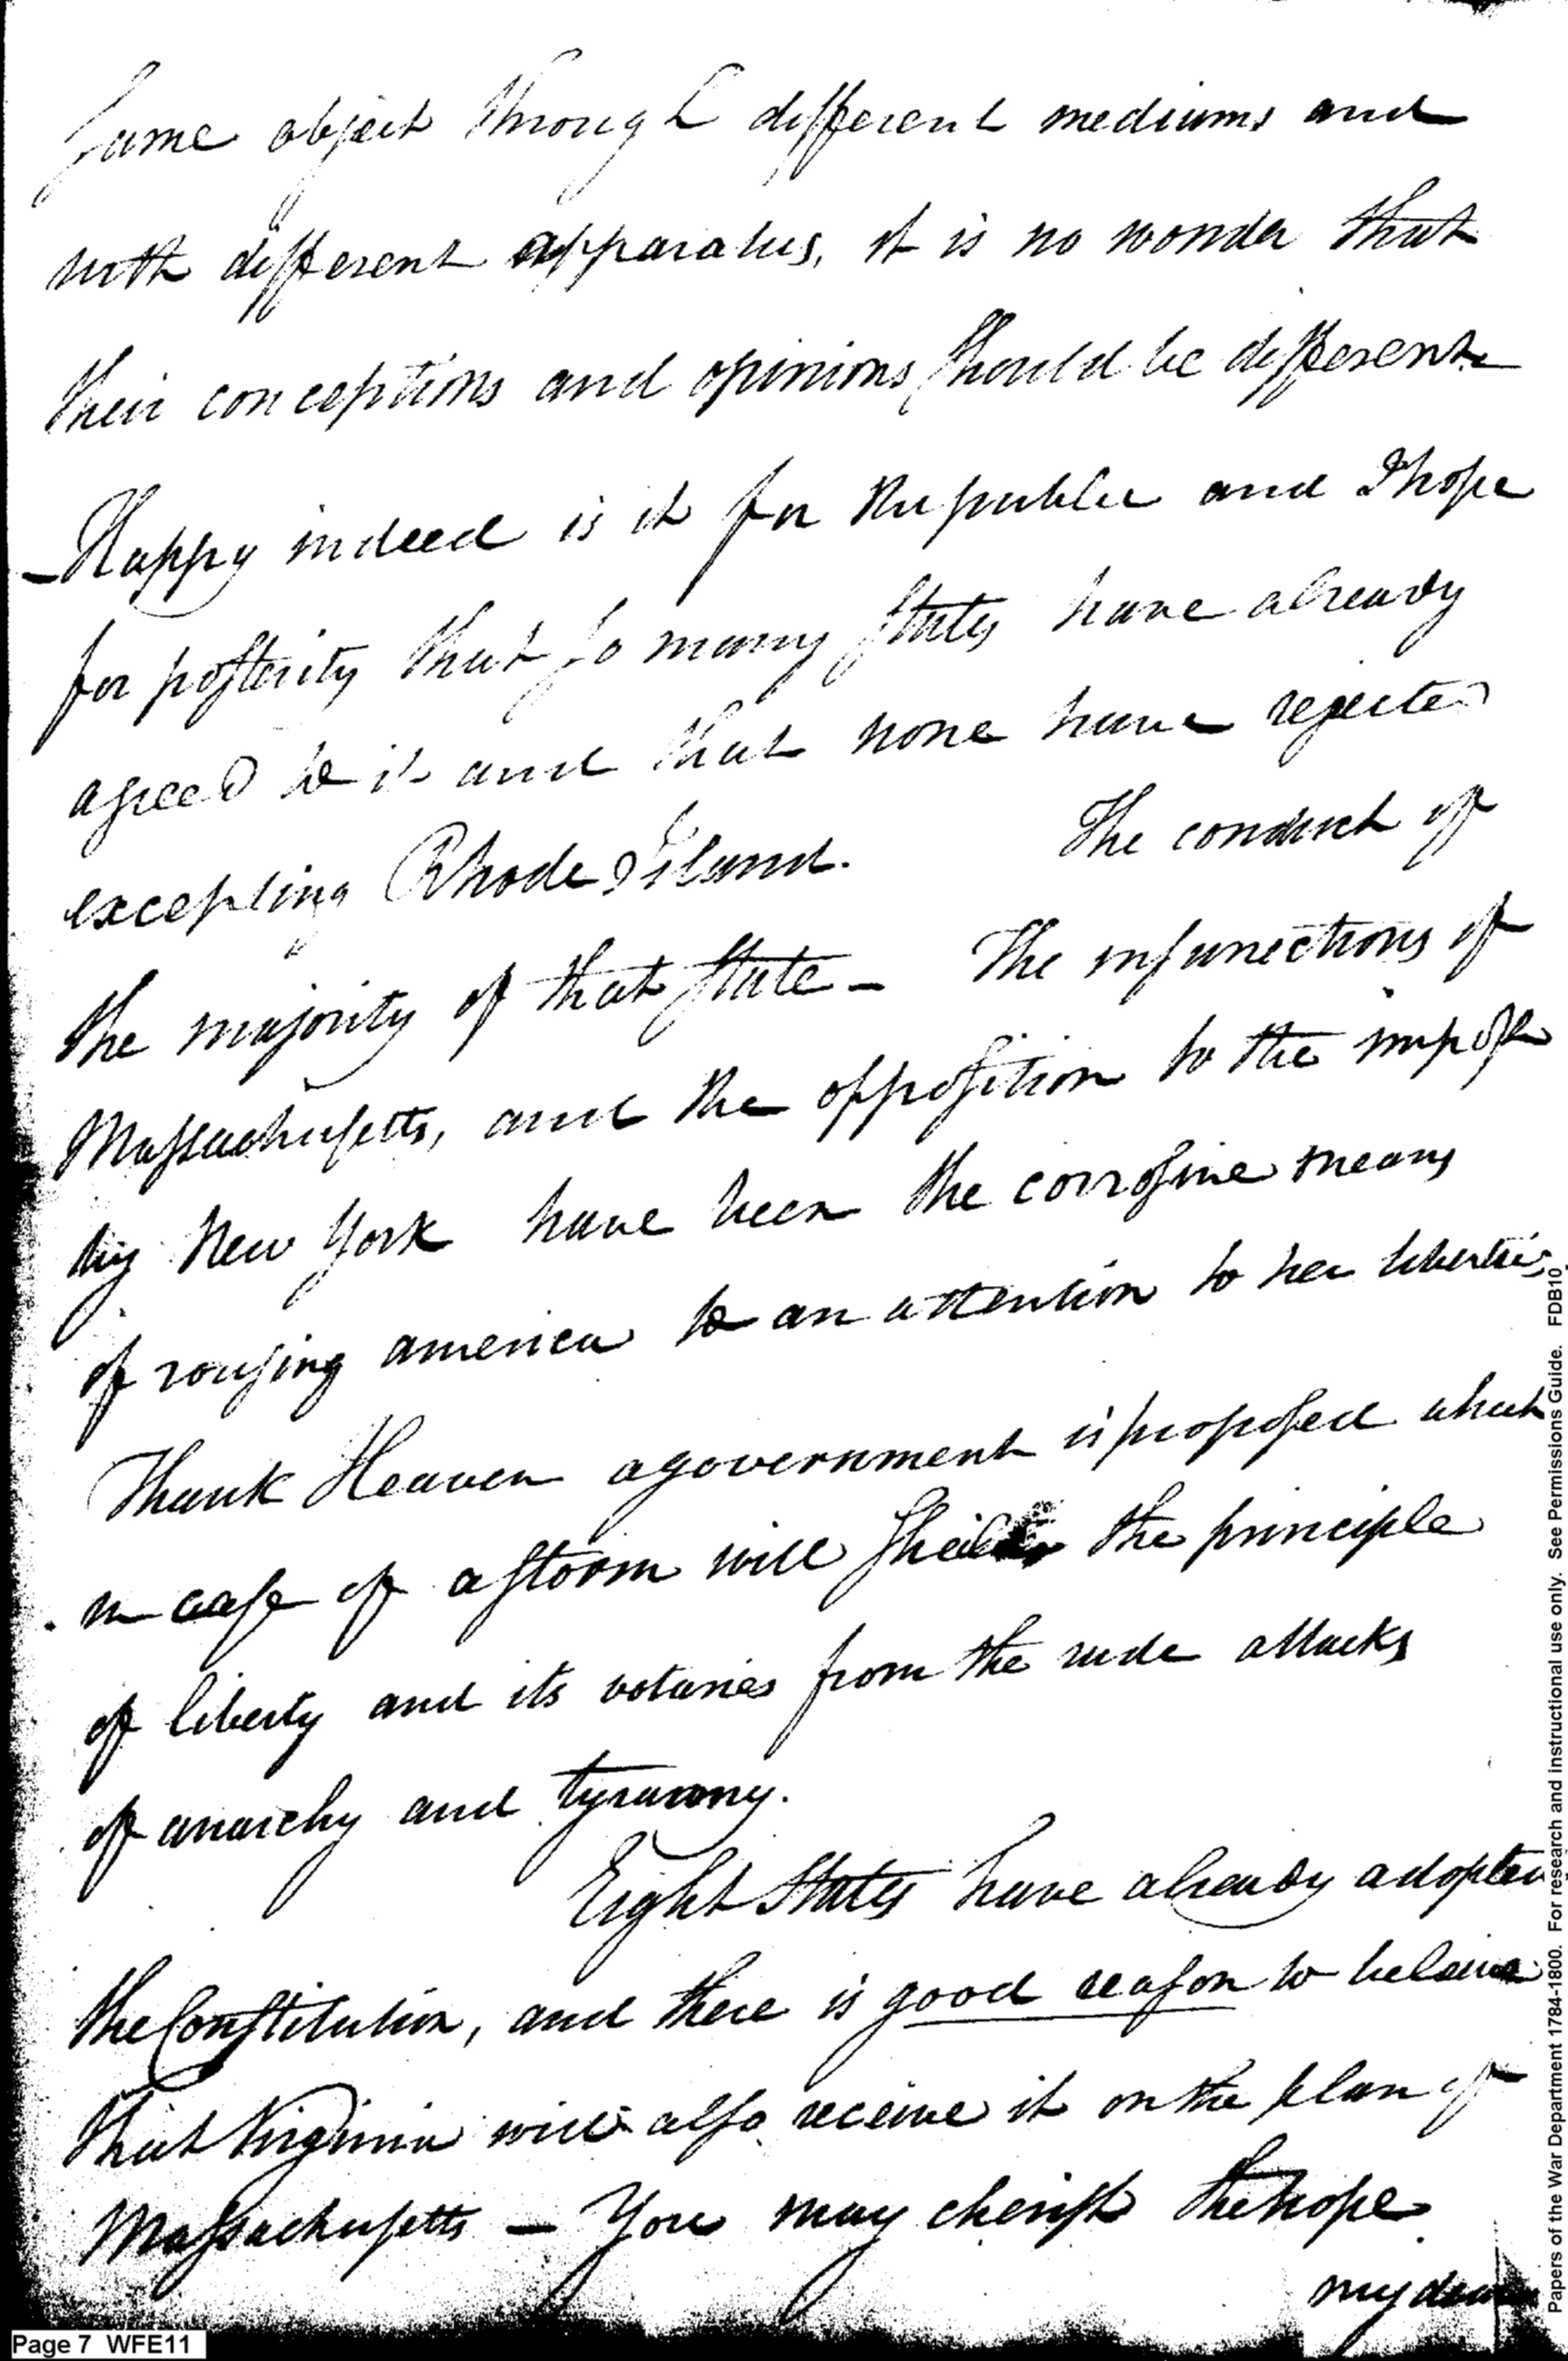 same object through different mediums and
with different apparatus, it is no wonder that
their conceptions and opinions should be different
- Happy indeed is it for the public and I hope
for posterity that so many states have already
agreed to it and that none have rejected
excepting Rhode Island. The conduct of
the majority of that state - The insurrections of
Massachusetts, and the opposition to the impost
by New York have been the corrosive means
of rousing america to an attention to her liberties
Thank Heaven a government is proposed which
in case of a storm will the principle
of liberty and its votaries from the rude attacks
of anarchy and tyranny.
Eight states have already adopted
the Constitution, and there is good reason to beleive
that Virginia will also receive it on the plan of
Massachusetts - You may cherish the hope
my dear
Page 7 WFE11
Papers of the War Department 1784-1800. For research and instructional use only. See Permissions Guide. FDB10